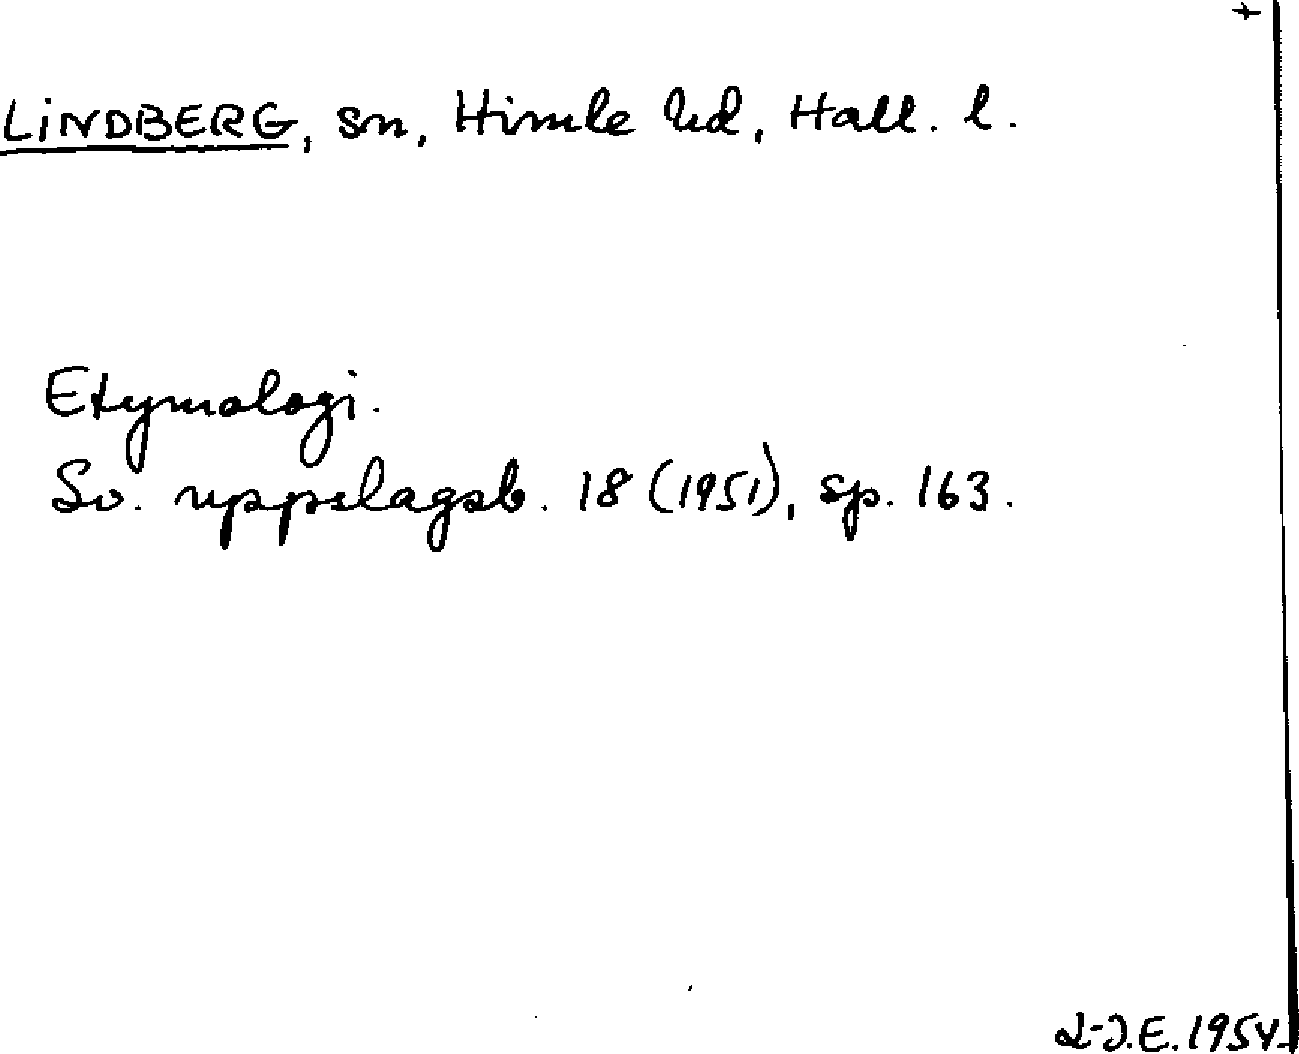 +
LINDBERG, sn, Himle hd, Hall. l.
Etymologi.
Sv. uppslagsb. 18 (1951), sp. 163.
L-J.E. 1954.